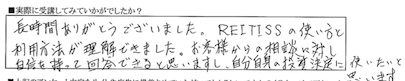 ■実際に受講してみていかがでしたか？
長時間ありがとうございました。REITISSの使い方と
利用方法が理解できました。お客様からの相談に対し
自信を持って回答できると思いますし、自分自身の投資決定に使いたいと
思います